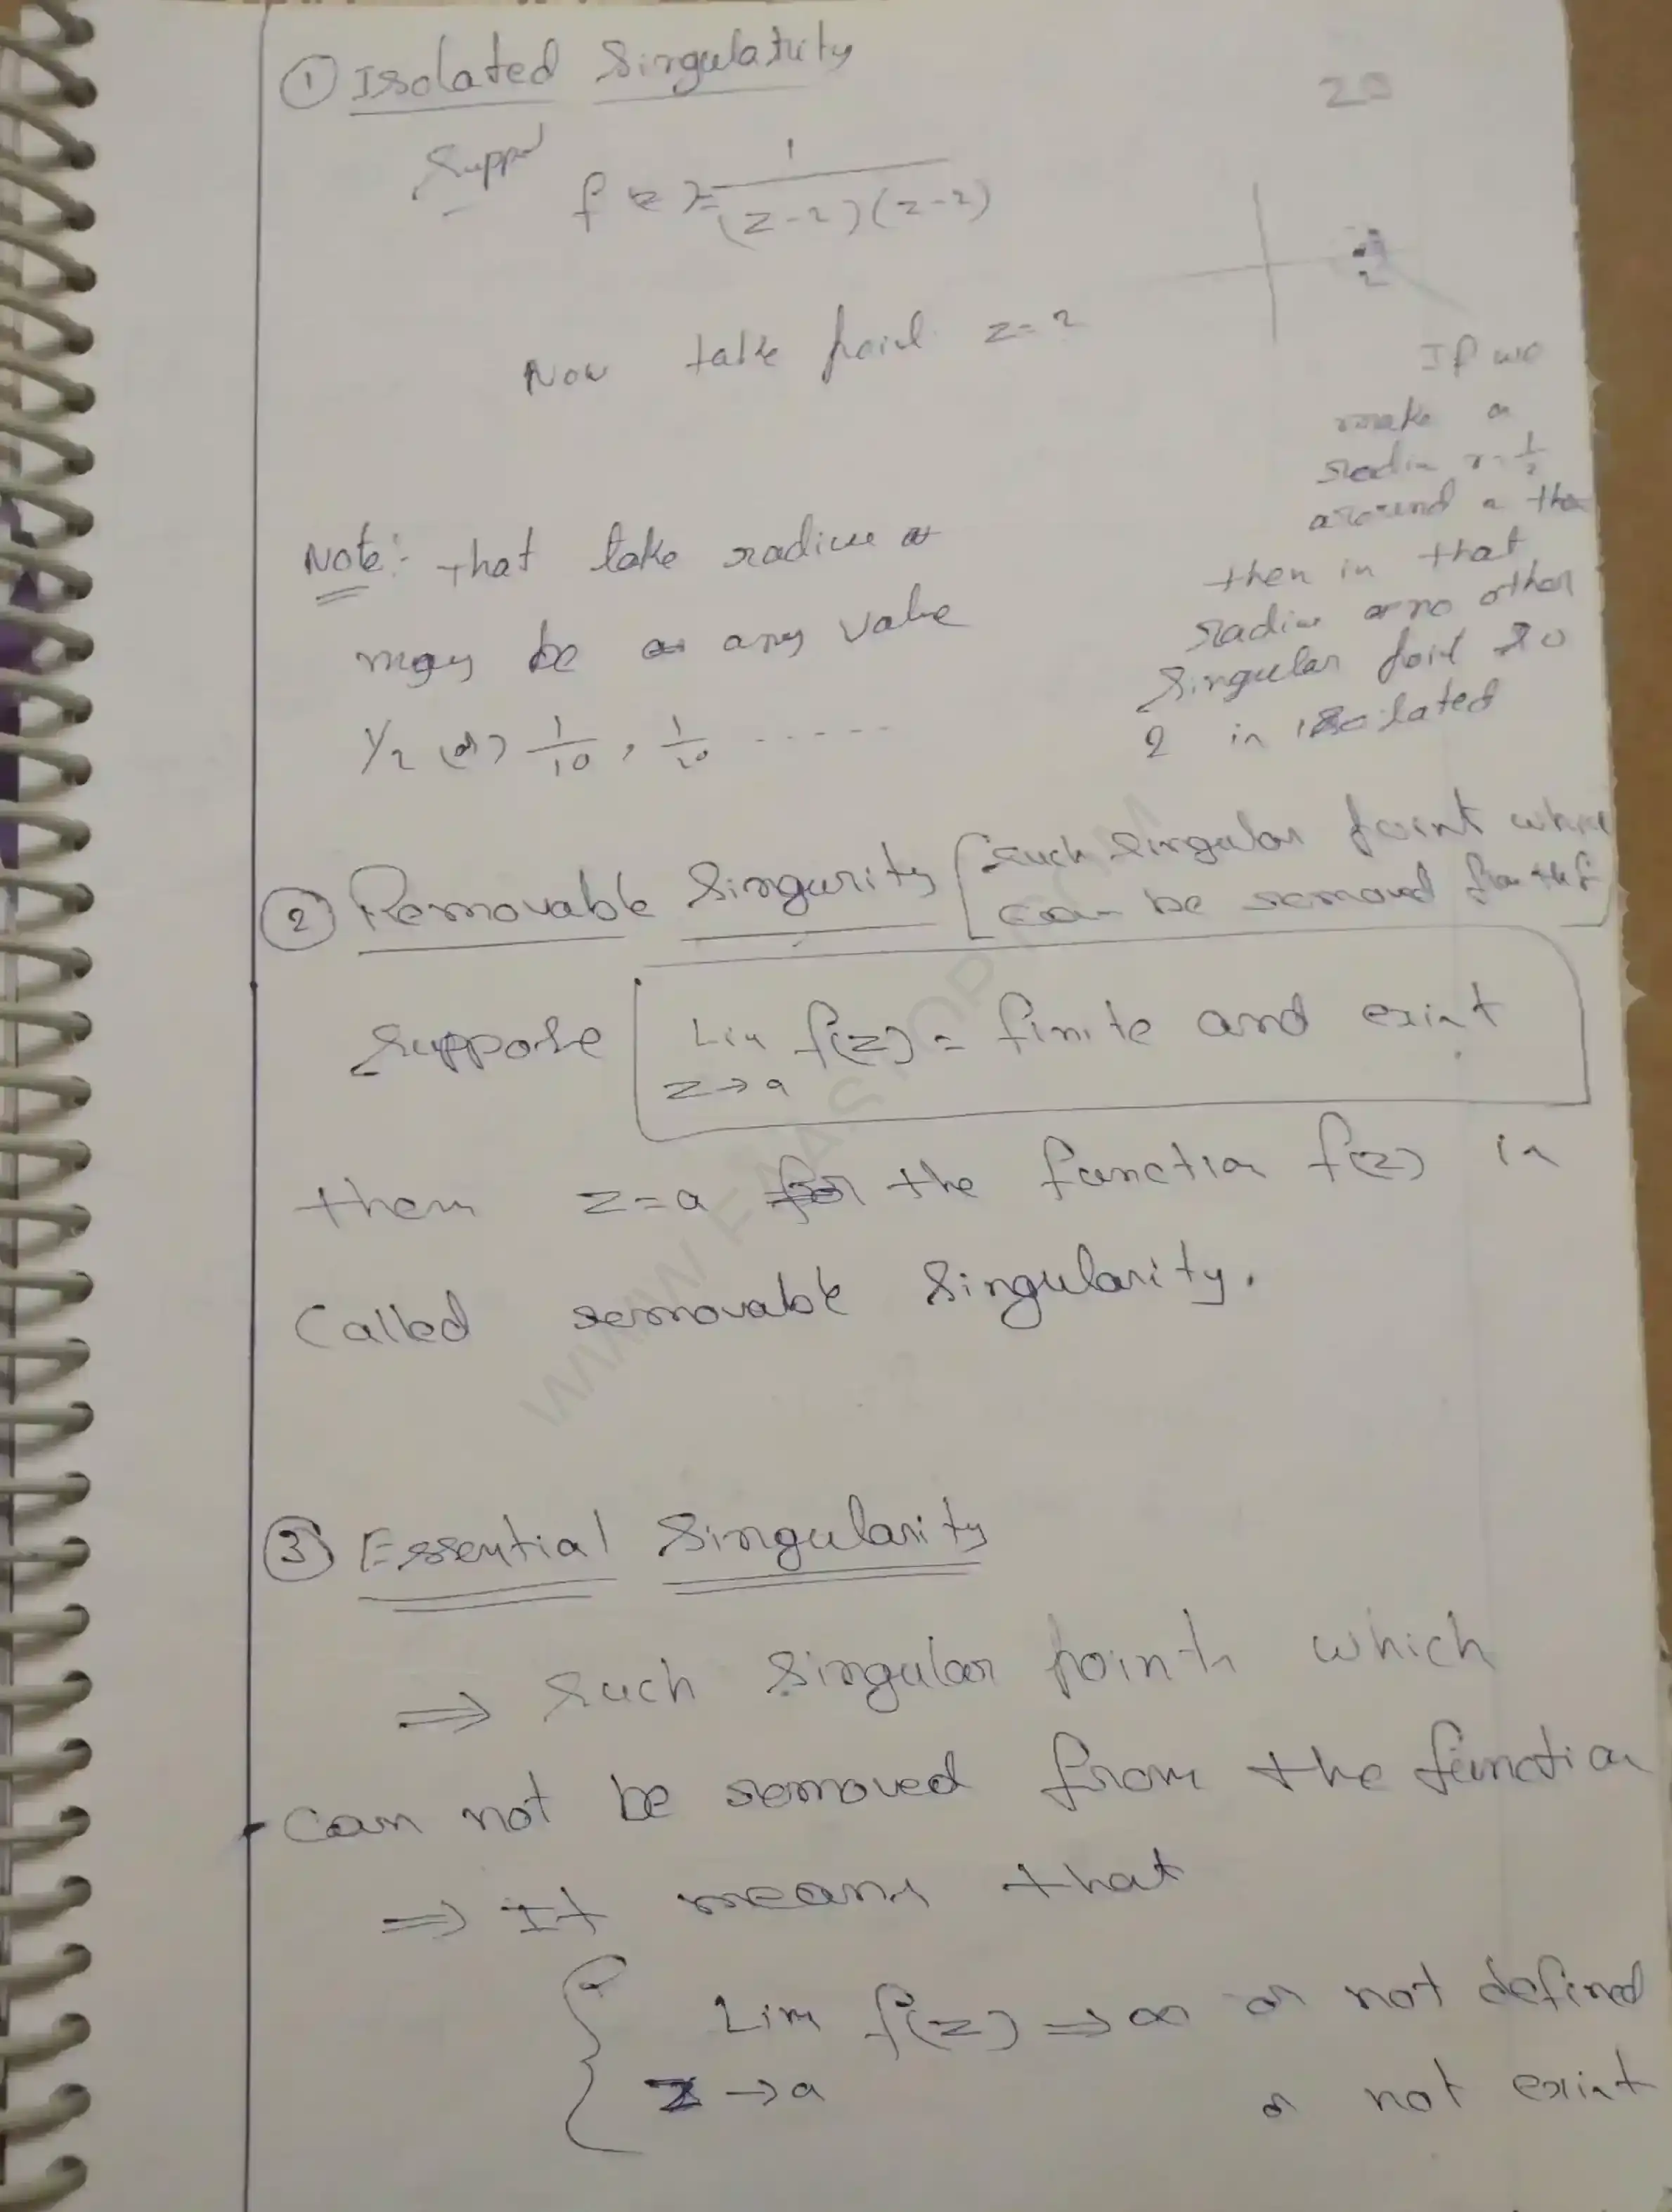 ① Isolated Singularity
20
Suppo
f(z)= 1/(z-2)(z-2)
2
Now take point z=2
If we
make a
radiu r=1/2
around a the
then in that
radius or no other
Singular point so
2 is isolated
Note:- that take radius or
may be or any value
1/2 (or) 1/10, 1/20 -----
② Removable Singurity [such singular point which
can be removed from the f]
Suppose Lim f(z) = finite and exist
z→a
then z=a for the function f(z) is
Called removable Singularity.
WWW.
③ Essential Singularity
⇒ such singular points which
can not be removed from the function
⇒ It means that
{ Lim f(z) ⇒ ∞ or not defined
z→a or not exist